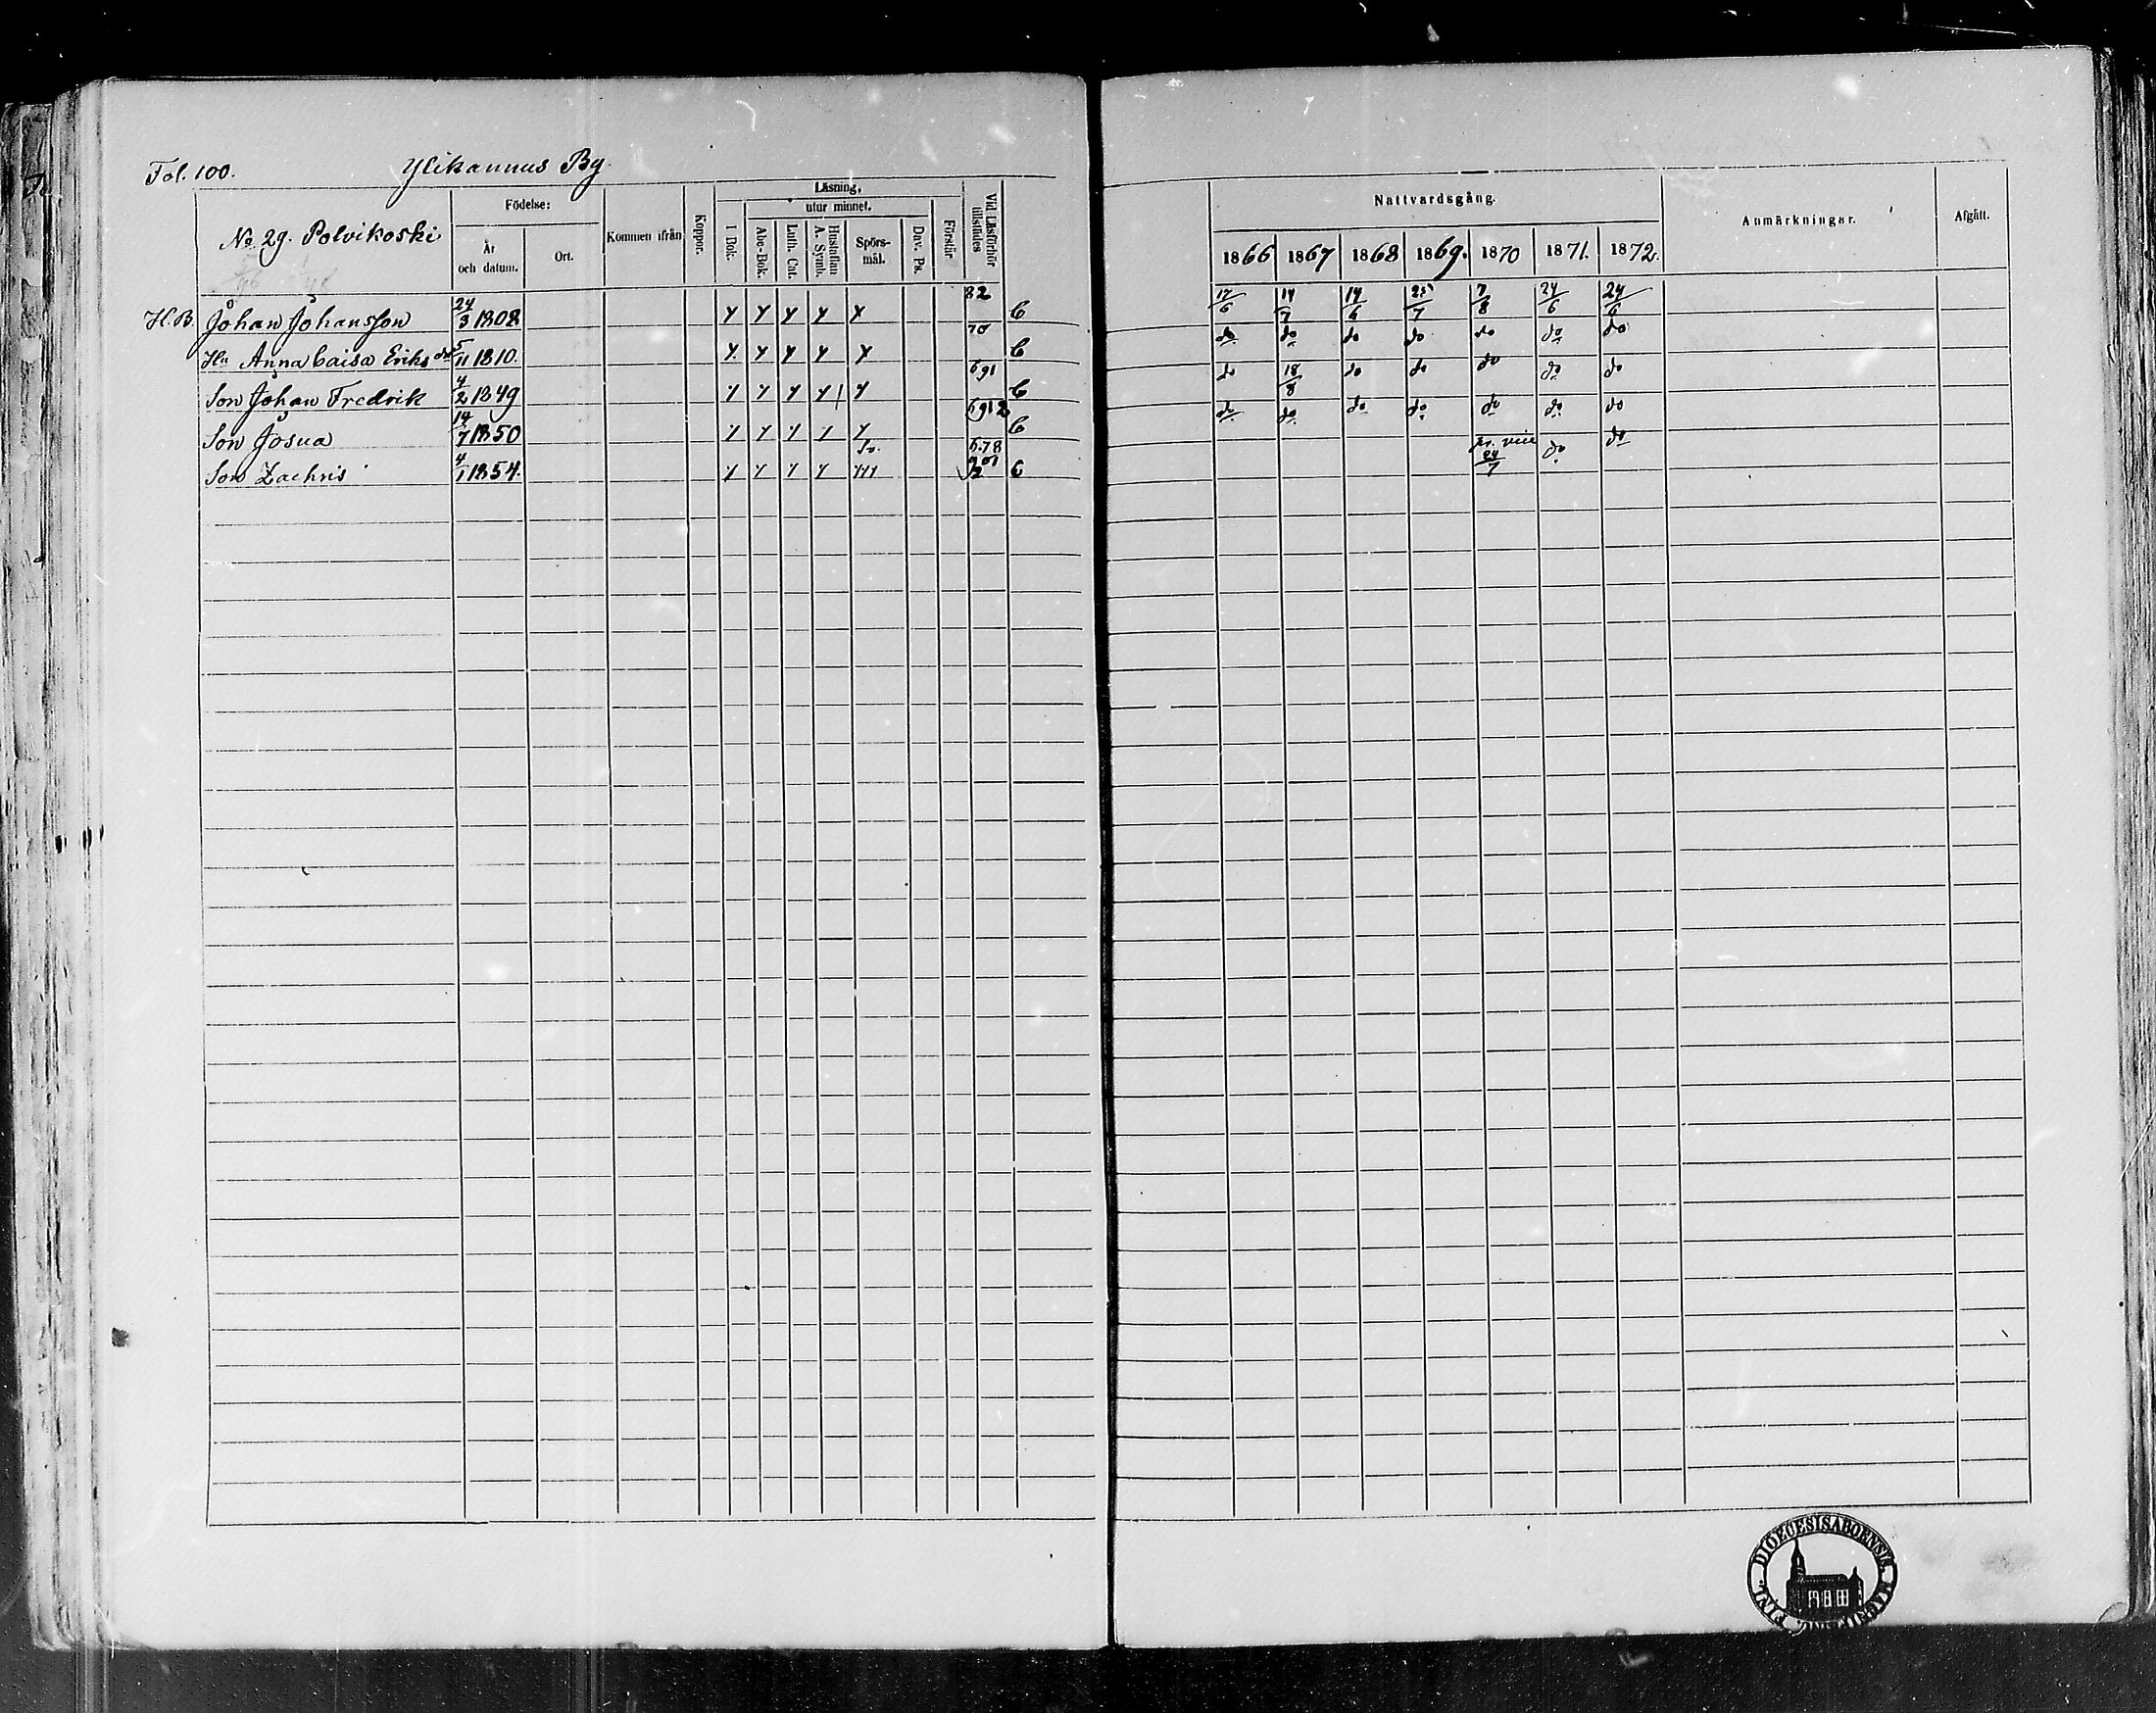 Fol. 100. Ylikannus By
No 29. Polvikoski
Födelse:
År och datum.
Ort.
Kommen ifrån
Koppor.
Läsning,
utur minnet.
I Bok.
Abc-Bok.
Luth. Cat.
Hustaflan A. Symb.
Spörs-mål.
Dav. Ps.
Förstår
Vid Läsförhör tillstädes
Nattvardsgång.
1866 1867 1868 1869. 1870 1871. 1872.
Anmärkningar.
Afgått.
H.B. Johan Johansson 24/3 1808 82 17/6 14/7 14/6 25/7 7/8 24/6 24/6
Hu Anna Caisa Eriksdr 5/11 1810. 70 do do do do do do do
Son Johan Fredrik 4/2 1849 691 do 18/8 do do do do do
Son Josua 14/7 1850 6912 do do do do do do do
Son Zachris 4/1 1854. 6.78 24/7 do do
FINL. DIOECESIS ABOENSIS MAGNI PRINC.